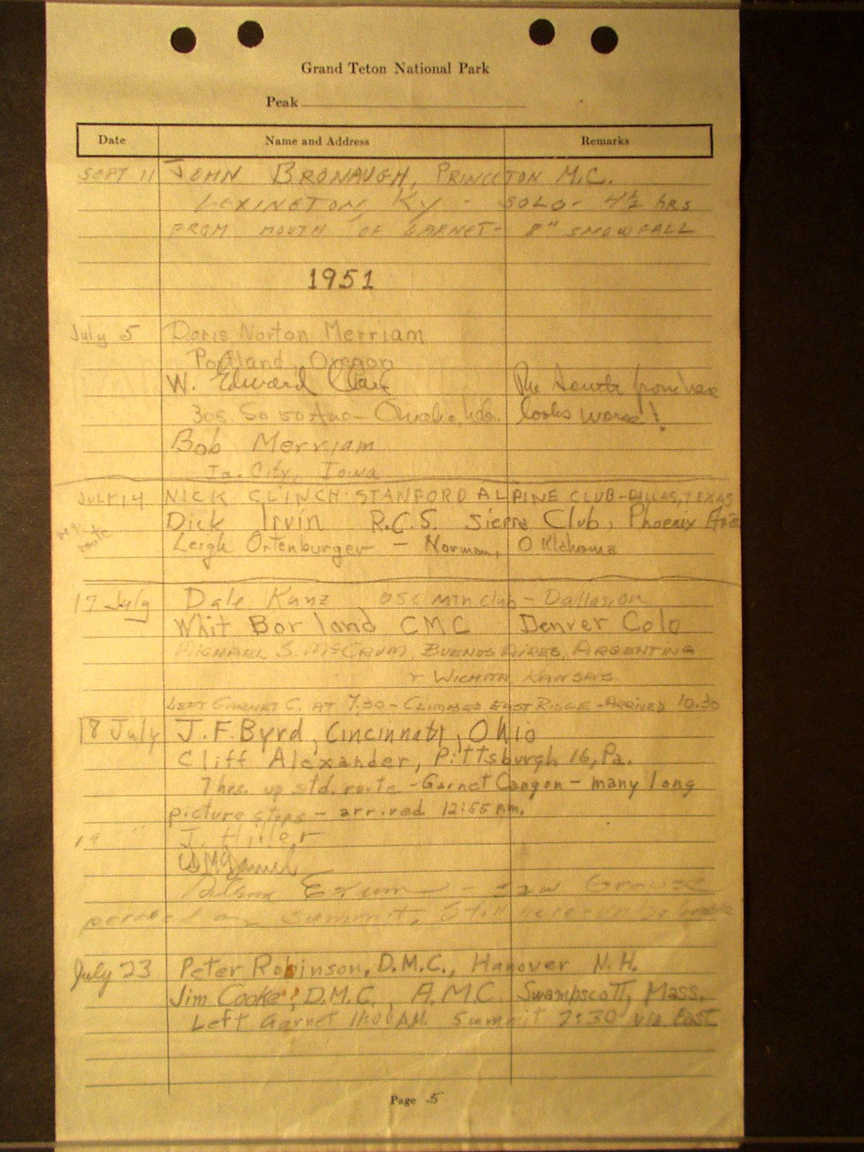 Grand Teton National Park
Peak
Date Name and Address Remarks
SEPT 11 JOHN BRONAUGH, PRINCETON M.C.
LEXINGTON, KY - SOLO - 4½ hRS
FROM MOUTH OF GARNET - 8" SNOWFALL
1951
July 5 Doris Norton Merriam
Portland, Oregon
W. Edward Clark The South from here
305 So 50 Ave - Omaha, looks worse!
Bob Merriam
Ia. City, Iowa
JULY 14 NICK CLINCH - STANFORD ALPINE CLUB - DALLAS, TEXAS
Dick Irvin R.C.S. Sierra Club, Phoenix
route Leigh Ortenburger - Norman, Oklahoma
17 July Dale Kunz OSC Mtn Club -
Whit Borland CMC Denver Colo
MICHAEL S. McCRUM, BUENOS AIRES, ARGENTINA
+ WICHITA KANSAS
LEFT GARNET C. AT 7.30 - CLIMBED EAST RIDGE - ARRIVED 10.30
18 July J. F. Byrd, Cincinnati, Ohio
Cliff Alexander, Pittsburgh 16, Pa.
7 hrs. up std. route - Garnet Canyon - many long
picture stops - arrived 12:55 P.M.
19 " J. Hiller
Exum - saw Grouse
perched on summit, Still here
July 23 Peter Robinson, D.M.C., Hanover N.H.
Jim Cooke, D.M.C., A.M.C. Swampscott, Mass.
Left Garnet 11:00 AM. Summit 2:30 via East
Page 5